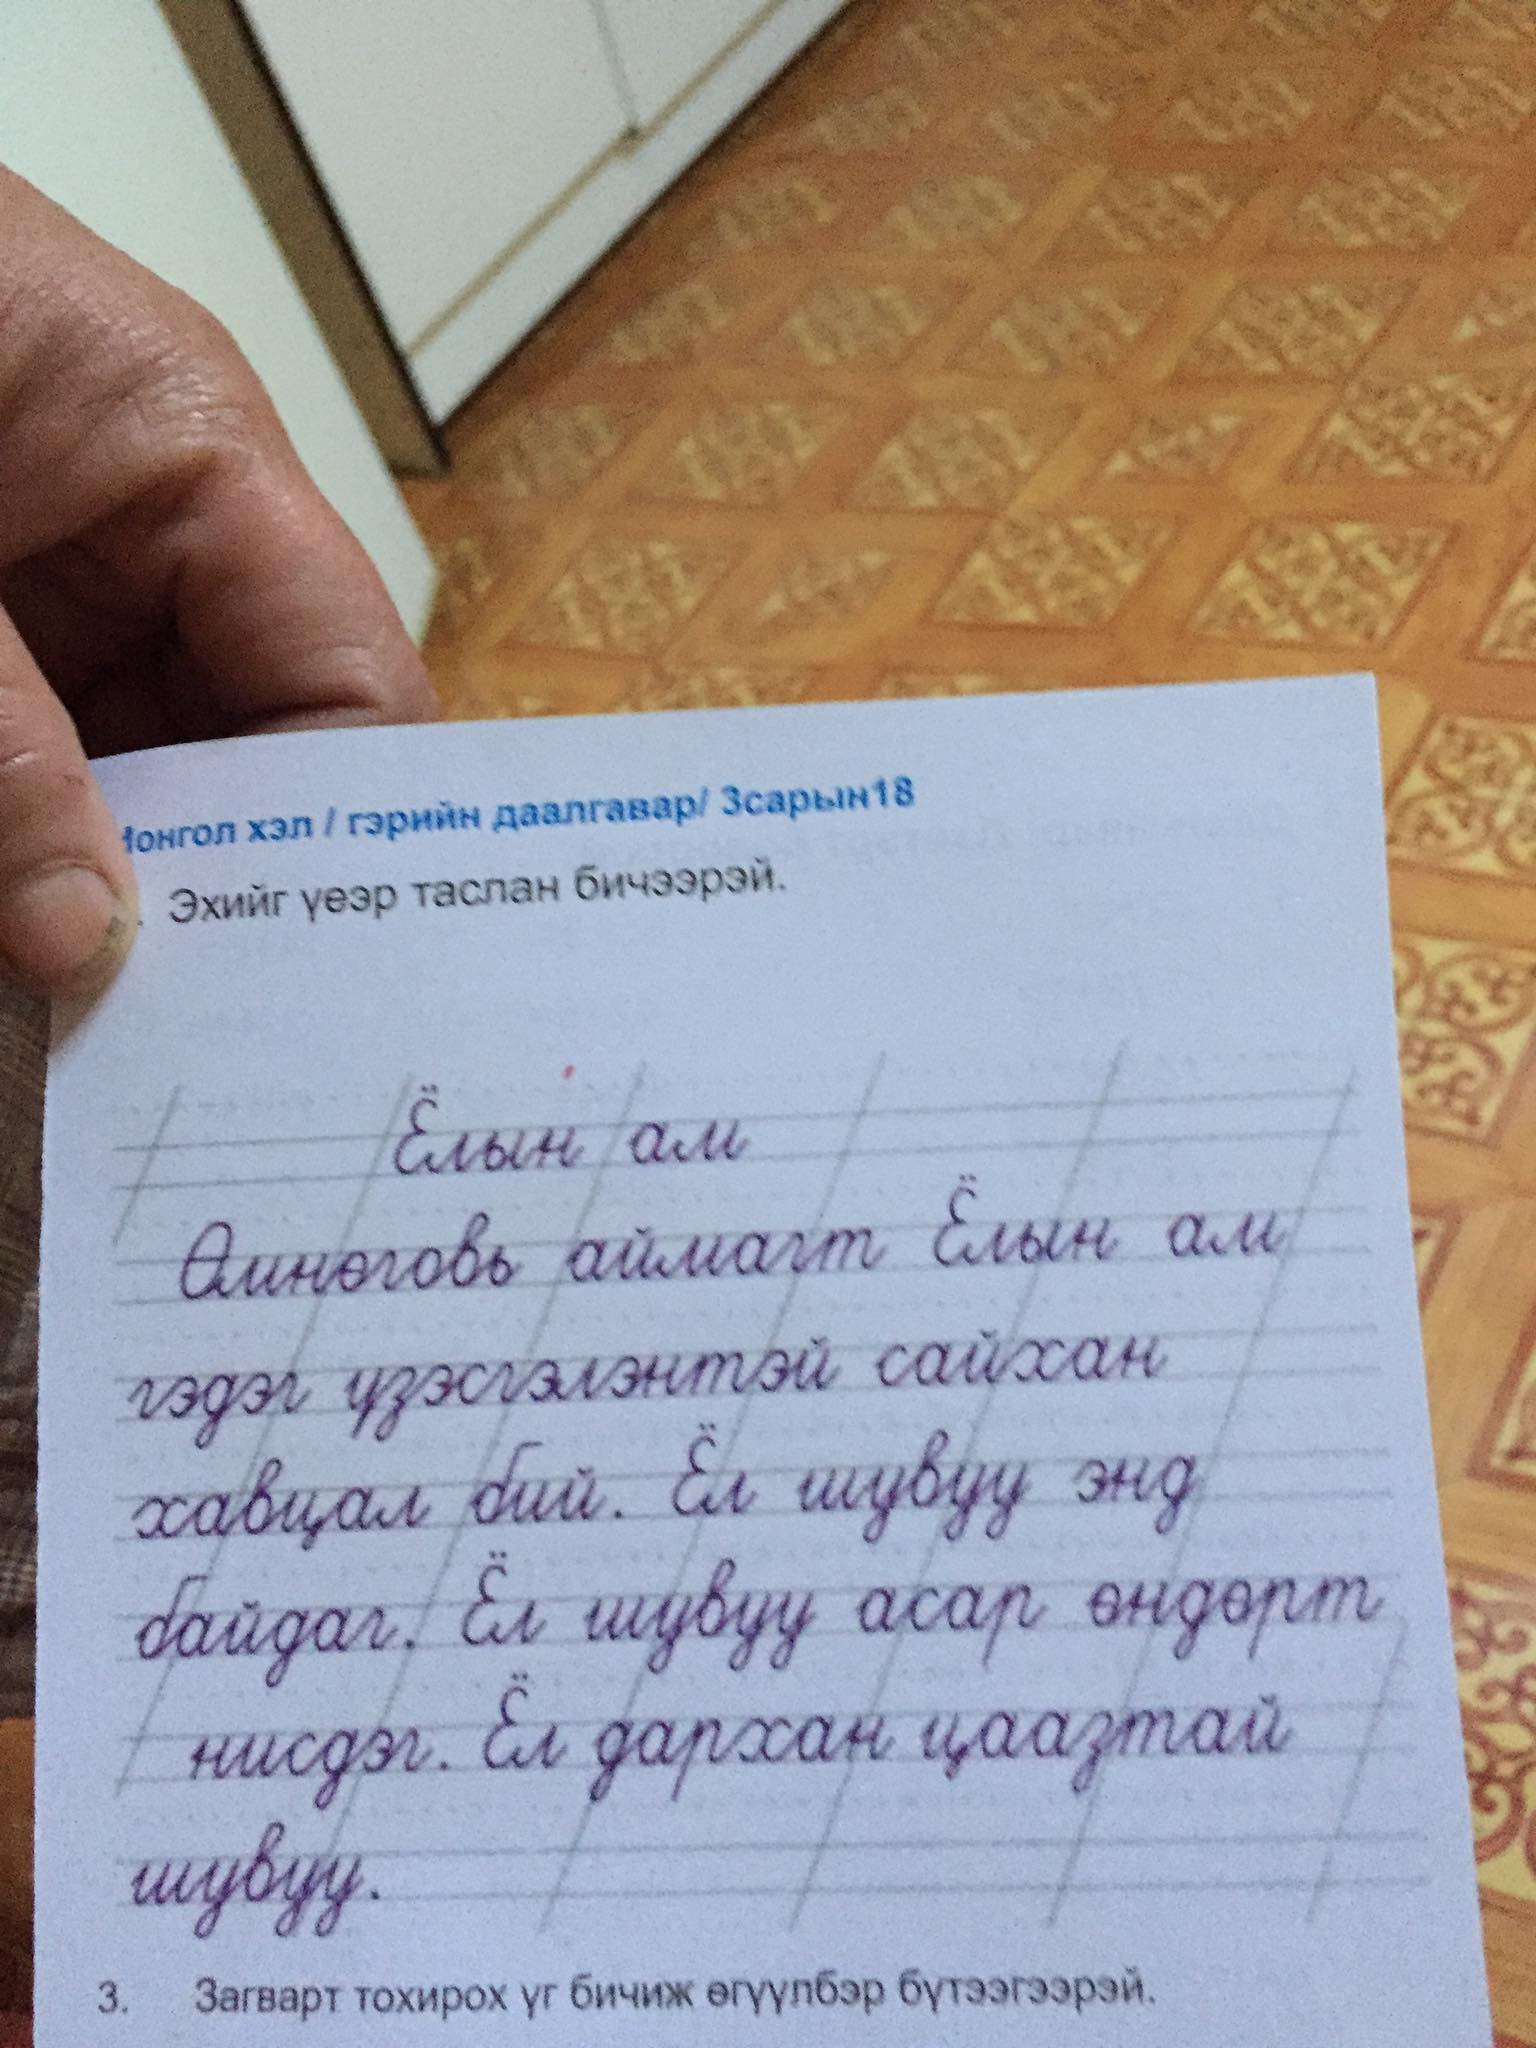 Монгол хэл / гэрийн даалгавар/ 3сарын18
. Эхийг үеэр таслан бичээрэй.
Ёлын ам
Өмнөговь аймагт Ёлын ам
гэдэг үзэсгэлэнтэй сайхан
хавцал бий. Ёл шувуу энд
байдаг. Ёл шувуу асар өндөрт
нисдэг. Ёл дархан цаазтай
шувуу.
3. Загварт тохирох үг бичиж өгүүлбэр бүтээгээрэй.